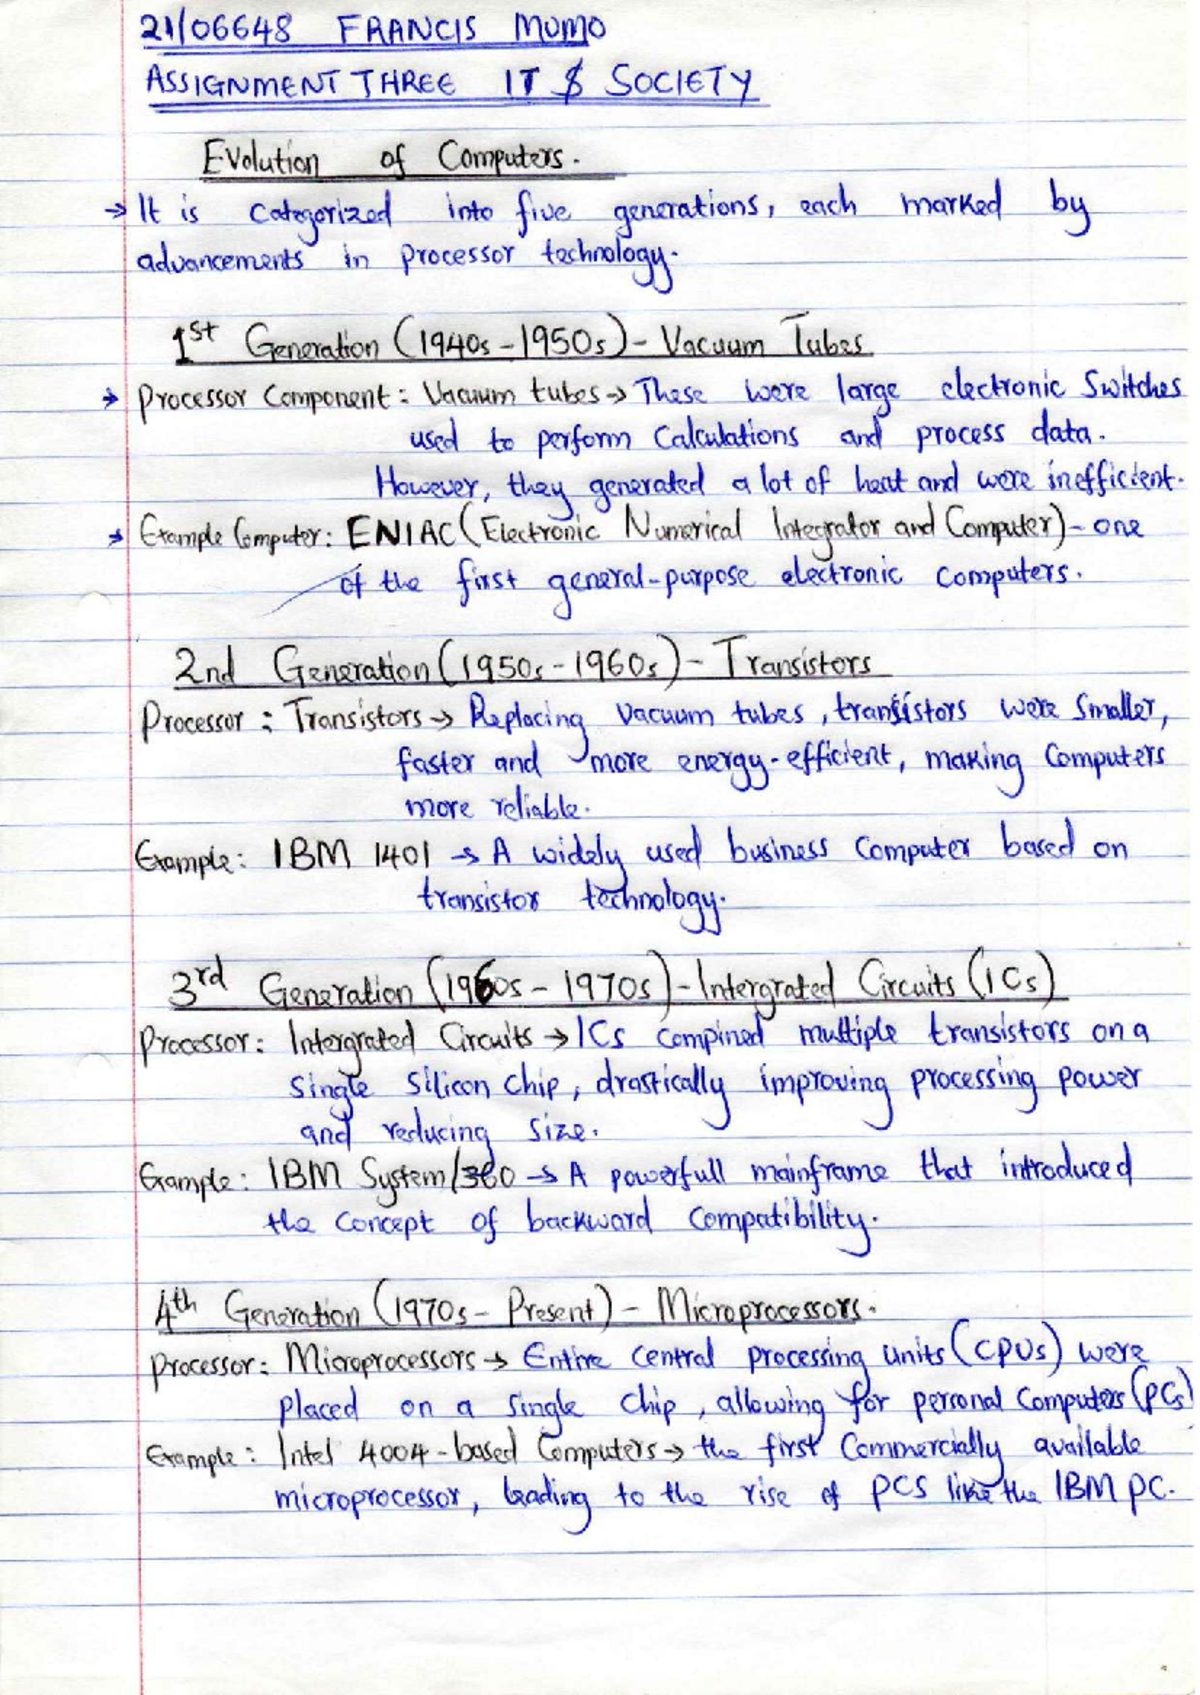 21/06648 FRANCIS MUMO
ASSIGNMENT THREE IT & SOCIETY
Evolution of Computers.
→ It is categorized into five generations, each marked by
advancements in processor technology.
1st Generation (1940s-1950s) - Vacuum Tubes
→ Processor Component: Vacuum tubes → These were large electronic switches
used to perform Calculations and process data.
However, they generated a lot of heat and were inefficient.
→ Example Computer: ENIAC (Electronic Numerical Integrator and Computer) - one
of the first general-purpose electronic computers.
2nd Generation (1950s-1960s) - Transistors
Processor: Transistors → Replacing vacuum tubes, transistors were smaller,
faster and more energy-efficient, making computers
more reliable.
Example: IBM 1401 → A widely used business computer based on
transistor technology.
3rd Generation (1960s - 1970s) - Intergrated Circuits (ICs)
Processor: Intergrated Circuits → ICs compined multiple transistors on a
single silicon chip, drastically improving processing power
and reducing size.
Example: IBM System/360 → A powerfull mainframe that introduced
the concept of backward compatibility.
4th Generation (1970s - Present) - Microprocessors.
Processor: Microprocessors → Entire central processing units (CPUs) were
placed on a single chip, allowing for personal computers (PCs)
Example: Intel 4004-based Computers → the first commercially available
microprocessor, leading to the rise of PCS like the IBM PC.